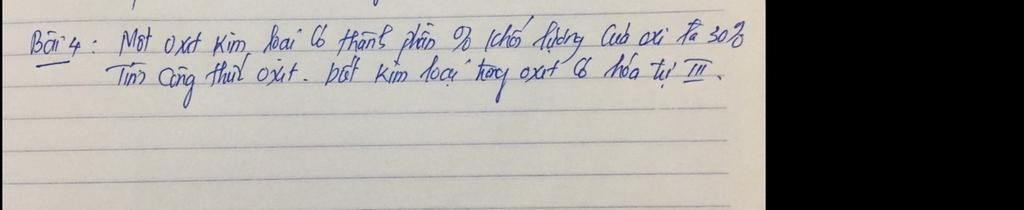 Bài 4: Một oxit kim loại có thành phần % khối lượng của oxi là 30%
Tìm công thức oxit. biết kim loại trong oxit có hóa trị III.